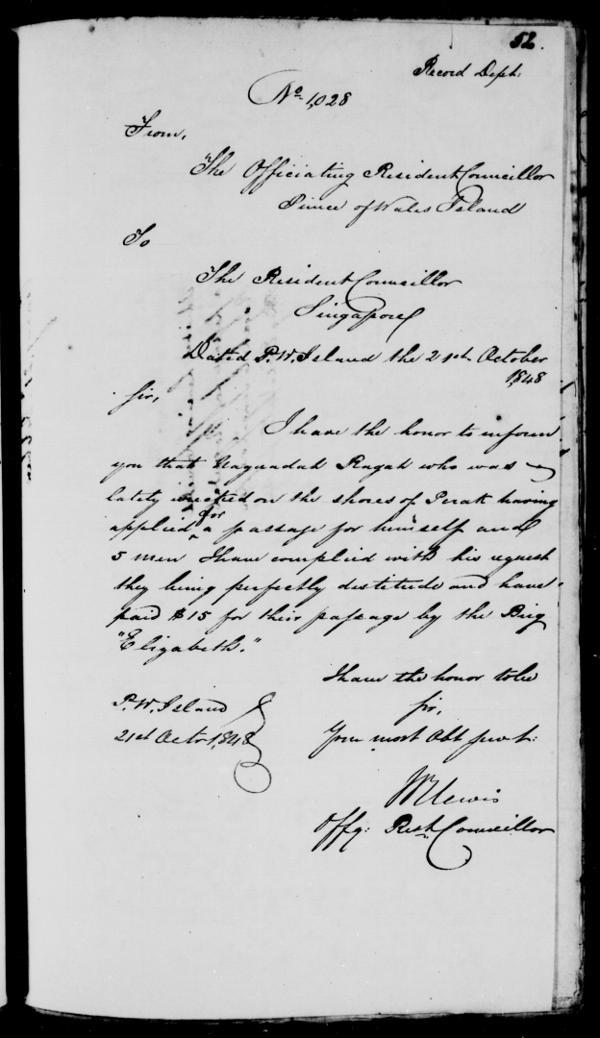 52.
Record Dept:
No. 1,028
From,
The Officiating Resident Councillor
Prince of Wales Island
To
The Resident Councillor
Singapore
Dated P. W. Island the 21st October
1848
Sir,
I have the honor to inform
you that Naquadah Ragah who was
lately wrecked on the shores of Perak having
applied for a passage for himself and
5 men I have complied with his request
they being perfectly destitude and have
paid $15 for their passage by the Brig
"Elizabeth."
I have the honor to be
Sir,
P. W. Island
21st Octr 1848
Your most Obt Servt:
W Lewis
Offg: Rest. Councillor